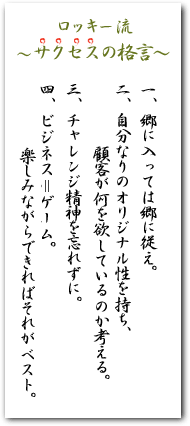 ロッキー流
～サクセスの格言～
一、郷に入っては郷に従え。
二、自分なりのオリジナル性を持ち、
顧客が何を欲しているのか考える。
三、チャレンジ精神を忘れずに。
四、ビジネス＝ゲーム。
楽しみながらできればそれがベスト。